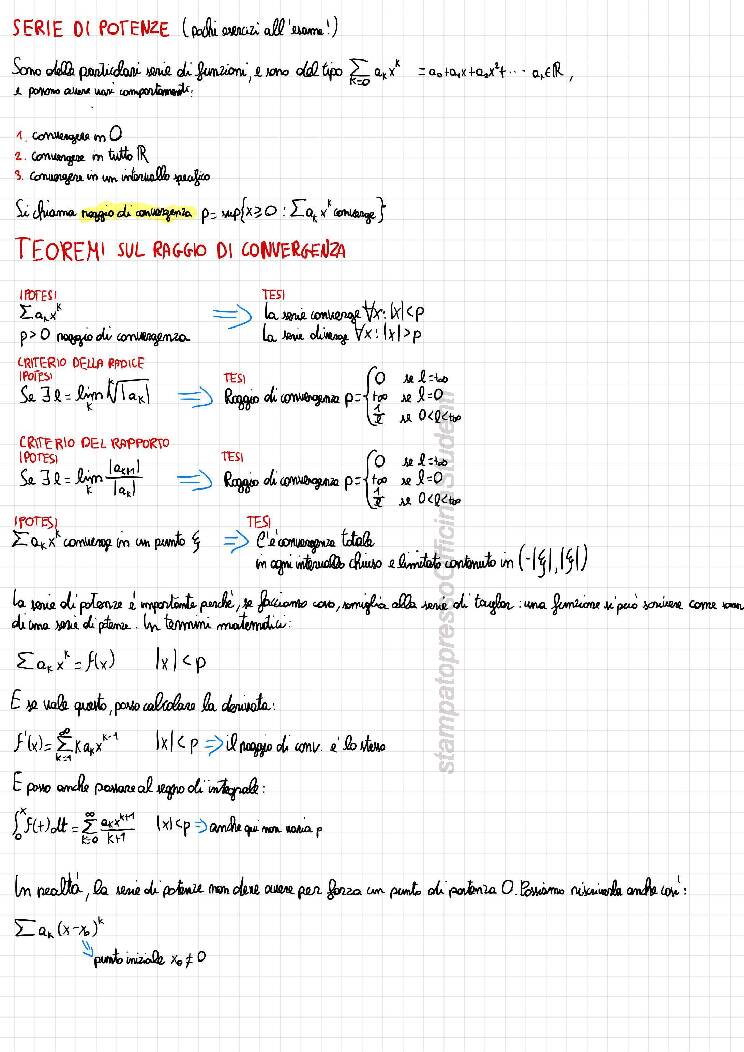 SERIE DI POTENZE (pochi esercizi all'esame!)
Sono delle particolari serie di funzioni, e sono del tipo ∑_{k=0} a_k x^k = a_0+a_1x+a_2x²+... a_k∈ℝ,
e possono avere vari comportamenti:
1. convergere in 0
2. convergere in tutto ℝ
3. convergere in un intervallo specifico
Si chiama raggio di convergenza ρ= sup{x≥0 : ∑a_k x^k converge}
TEOREMI SUL RAGGIO DI CONVERGENZA
IPOTESI TESI
∑a_k x^k ⇒ La serie converge ∀x: |x|<ρ
ρ>0 raggio di convergenza La serie diverge ∀x: |x|>ρ
CRITERIO DELLA RADICE
IPOTESI TESI
Se ∃ l = lim_k ᵏ√|a_k| ⇒ Raggio di convergenza ρ= { 0 se l=+∞
+∞ se l=0
1/l se 0<l<+∞
CRITERIO DEL RAPPORTO
IPOTESI TESI
Se ∃ l = lim_k |a_{k+1}|/|a_k| ⇒ Raggio di convergenza ρ= { 0 se l=+∞
+∞ se l=0
1/l se 0<l<+∞
IPOTESI TESI
∑a_k x^k converge in un punto ξ ⇒ C'è convergenza totale
in ogni intervallo chiuso e limitato contenuto in (-|ξ|,|ξ|)
La serie di potenze è importante perchè, se facciamo caso, somiglia alla serie di taylor: una funzione si può scrivere come
di una serie di potenze. In termini matematici:
∑a_k x^k = f(x) |x|<ρ
E se vale questo, posso calcolare la derivata:
f'(x)=∑_{k=1}^∞ k a_k x^{k-1} |x|<ρ ⇒ il raggio di conv. è lo stesso
E posso anche passare al segno di integrale:
∫_0^x f(t)dt = ∑_{k=0}^∞ a_k x^{k+1}/(k+1) |x|<ρ ⇒ anche qui non varia ρ
In realtà, la serie di potenze non deve avere per forza un punto di partenza 0. Possiamo riscriverla anche così:
∑a_k (x-x_0)^k
punto iniziale x_0 ≠ 0
stampatopressoOfficinaStudenti